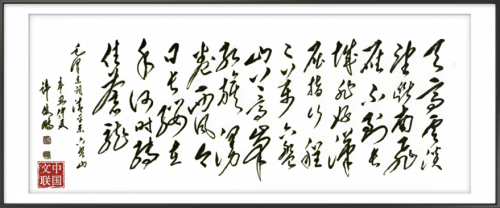 天高云淡
望断南飞
雁不到长
城非好汉
屈指行程
二万六盘
山上高峰
红旗漫
卷西风今
日长缨在
手何时缚
住苍龙
毛泽东词清平乐六盘山
辛丑仲夏
中国
文联